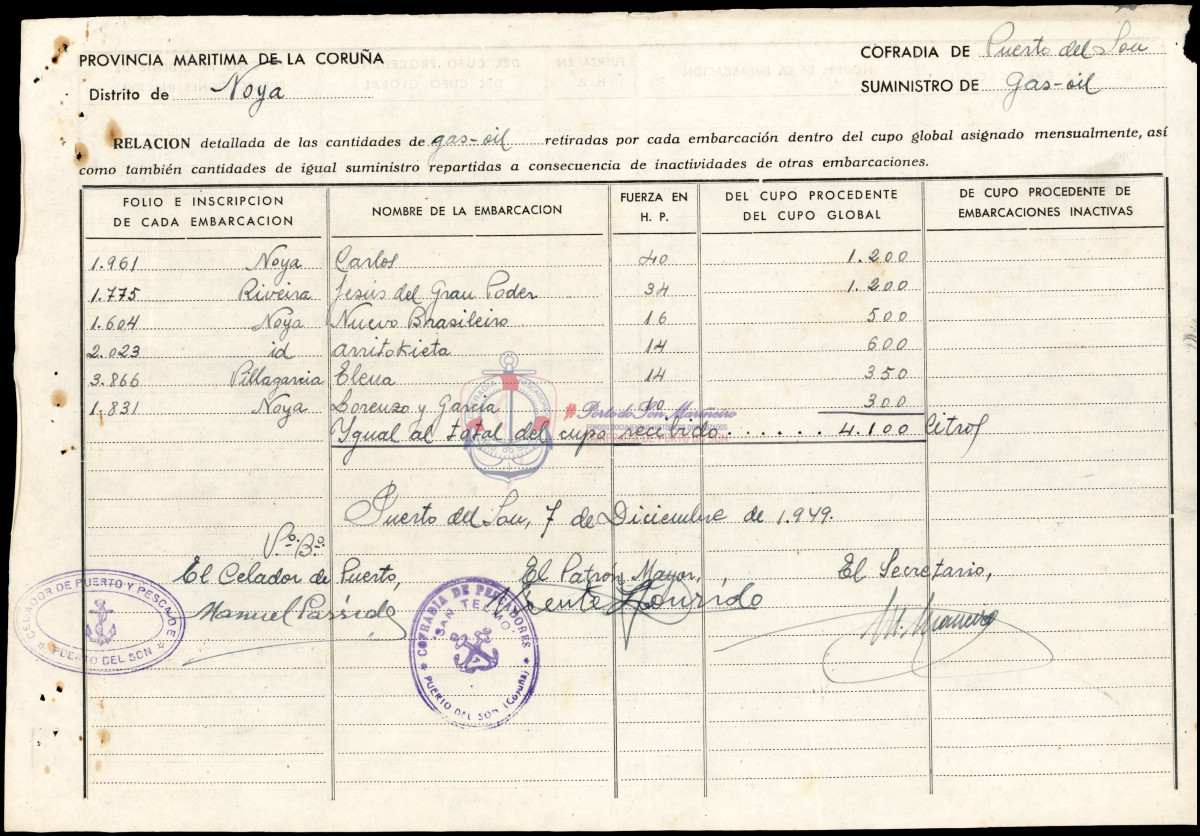 PROVINCIA MARITIMA DE LA CORUÑA
COFRADIA DE Puerto del Son
Distrito de Noya
SUMINISTRO DE gas-oil
RELACION detallada de las cantidades de gas-oil retiradas por cada embarcación dentro del cupo global asignado mensualmente, así
como también cantidades de igual suministro repartidas a consecuencia de inactividades de otras embarcaciones.
FOLIO E INSCRIPCION DE CADA EMBARCACION
NOMBRE DE LA EMBARCACION
FUERZA EN H. P.
DEL CUPO PROCEDENTE DEL CUPO GLOBAL
DE CUPO PROCEDENTE DE EMBARCACIONES INACTIVAS
1.961 Noya Carlos 40 1.200
1.775 Riveira Jesús del Gran Poder 34 1.200
1.604 Noya Nuevo Brasileiro 16 500
2.023 id arritokieta 14 600
3.866 Villagarcia Elena 14 350
1.831 Noya Lorenzo y Garcia 10 300
Ygual al total del cupo recibido...... 4.100 Litros
#Porto do Son Mariñeiro
Puerto del Son, 7 de Diciembre de 1.949.
Vº. Bº.
El Celador de Puerto,
El Patrón Mayor,
El Secretario,
Manuel
Vicente Lourido
M.
CELADOR DE PUERTO Y PESCA DE
PUERTO DEL SON
COFRADIA DE PESCADORES
"SAN TELMO"
PUERTO DEL SON (Coruña)